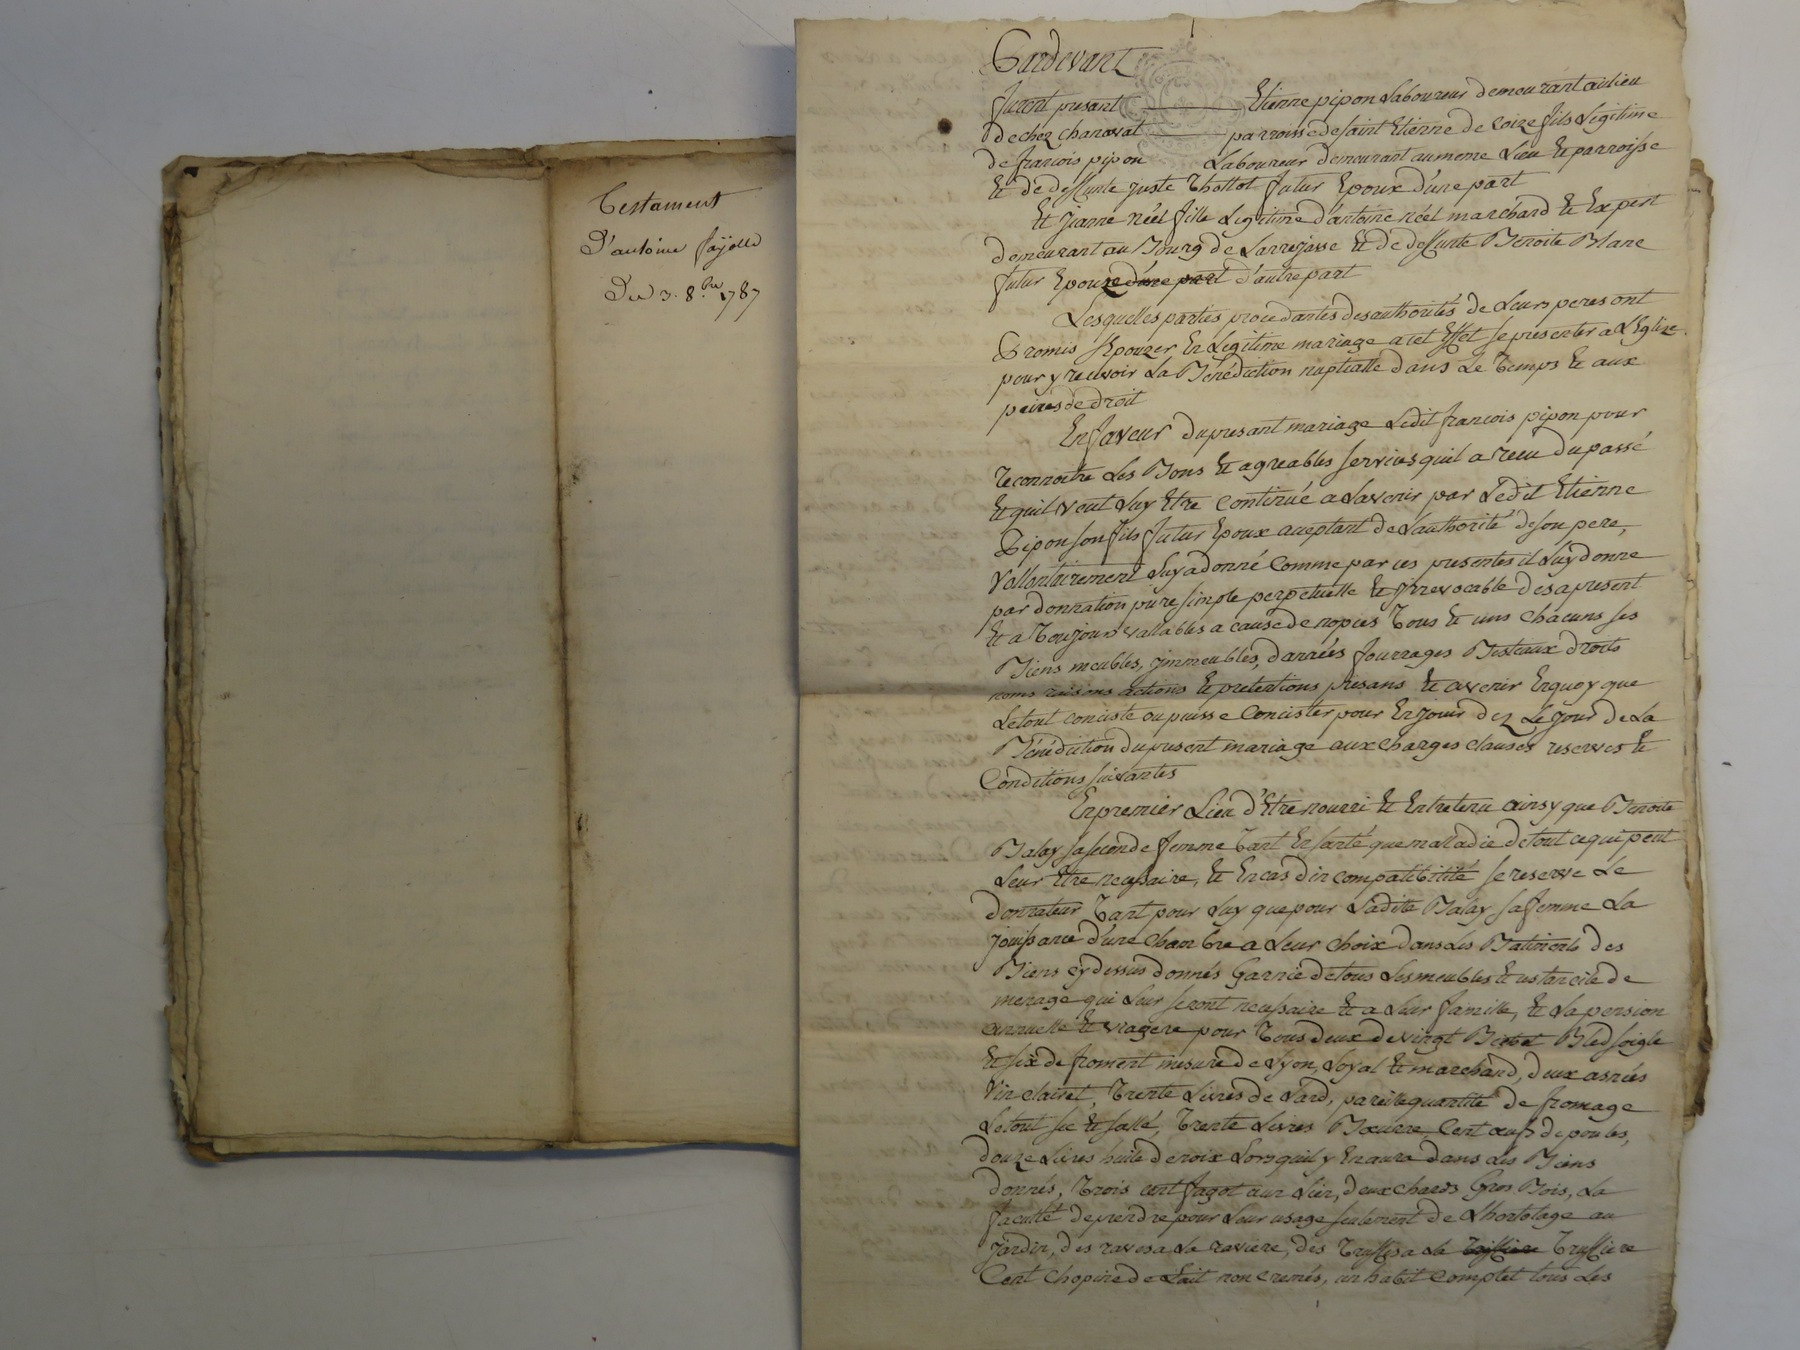 Testament
D'antoine fayolle
Du 3. 8.bre 1787
Pardevant
furent presant Etienne pipon Laboureur demeurant au lieu
de chez chanavat parroisse de saint Etienne de Coize fils Legitime
de francois pipon Laboureur demeurant au meme Lieu et parroisse
et de deffunte juste Thollot futur Epoux d'une part
Et Jeanne Néel fille Legitime d'antoine néel marchand et Expert
demeurant au Bourg de Larrejasse et de deffunte Benoite Blanc
futur Epouze d'une part d'autre part
Lesquelles parties procedantes des authorités de Leurs peres ont
Promis S'Epouzer En Legitime mariage a cet Effet se presenter a L'Eglize
pour y recevoir La Bénédiction nuptialle dans Le Temps et aux
peines de droit
En faveur du presant mariage Ledit francois pipon pour
reconnoitre Les Bons et agreables services quil a recu du passé
et quil veut Luy Etre Continué a Lavenir par Ledit Etienne
Pipon son fils futur Epoux aceptant de Lauthorité de son pere,
Vollontairement Luy a donné Comme par ces presentes il Luy donne
par donnation pure simple perpetuelle et Jrrevocable des a present
et a Toujours vallables a cause de nopces Tous et uns chacuns ses
Biens meubles, jmmeubles, danrées fourrages Bestiaux droits
noms raisons actions et pretentions presans et avenir Enquoy que
Le tout conciste ou puisse Concister pour En jouir dez Le jour de La
Bénédiction du present mariage aux charges clauses reserves et
Conditions suivantes
En premier Lieu d'Etre nourri et Entretenu ainsy que Benoite
Balay sa seconde femme Tant En santé que malladie de tout ce qui peut
Leur Etre necessaire, et En cas d'incompatibilité se reserve Le
donnateur Tant pour Luy que pour Ladite Balay sa femme La
jouissance d'une chambre a Leur choix dans Les Batiments des
Biens cy dessus donnés Garnie de tous Les meubles et ustancile de
menage qui Leur seront necessaire et a Leur famille, et La pension
annuelle et viagere pour Tous deux de vingt Bichet Bled soigle
et six de froment mesure de Lyon, Loyal et marchand, deux asnées
Vin clairet, Trente Livres de Lard, pareille quantité de fromage
Le tout sec et sallé, Trente Livres Beurre, Cent œufs de poules,
douze Livres huile de noix Lorsquil y En aura dans Les Biens
donnés, Trois cent fagot a un Lien, deux chards Gros Bois, La
faculté de prendre pour Leur usage seulement de Lhortolage au
Jardin, des raves a La raviere, des Truffes a La Truffiere
Cent chopine de Lait non cremés, un habit complet tous Les